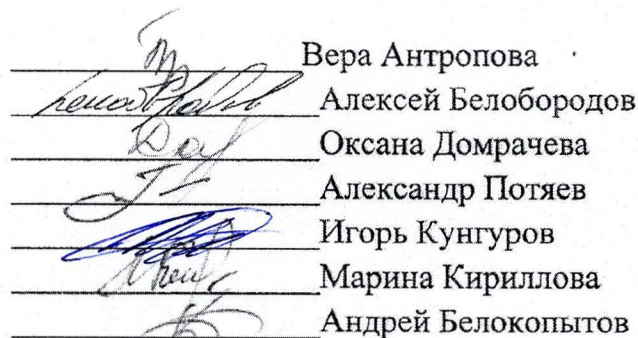 Вера Антропова
Алексей Белобородов
Оксана Домрачева
Александр Потяев
Игорь Кунгуров
Марина Кириллова
Андрей Белокопытов